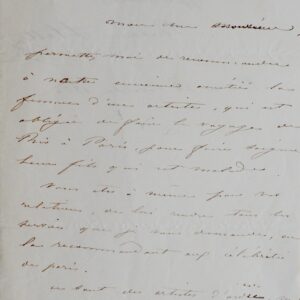 mon cher Monsieur,
permettez moi de recommander
à notre ancienne amitié la
femme d'un artiste, qui est
obligée de faire le voyage de
à Paris, pour faire soigner
leur fils qui est malade.
Vous êtes à même par vos
relations de lui rendre tous les
services que je vous demande, en
la recommandant aux célébrités
de paris.
ce sont des artistes